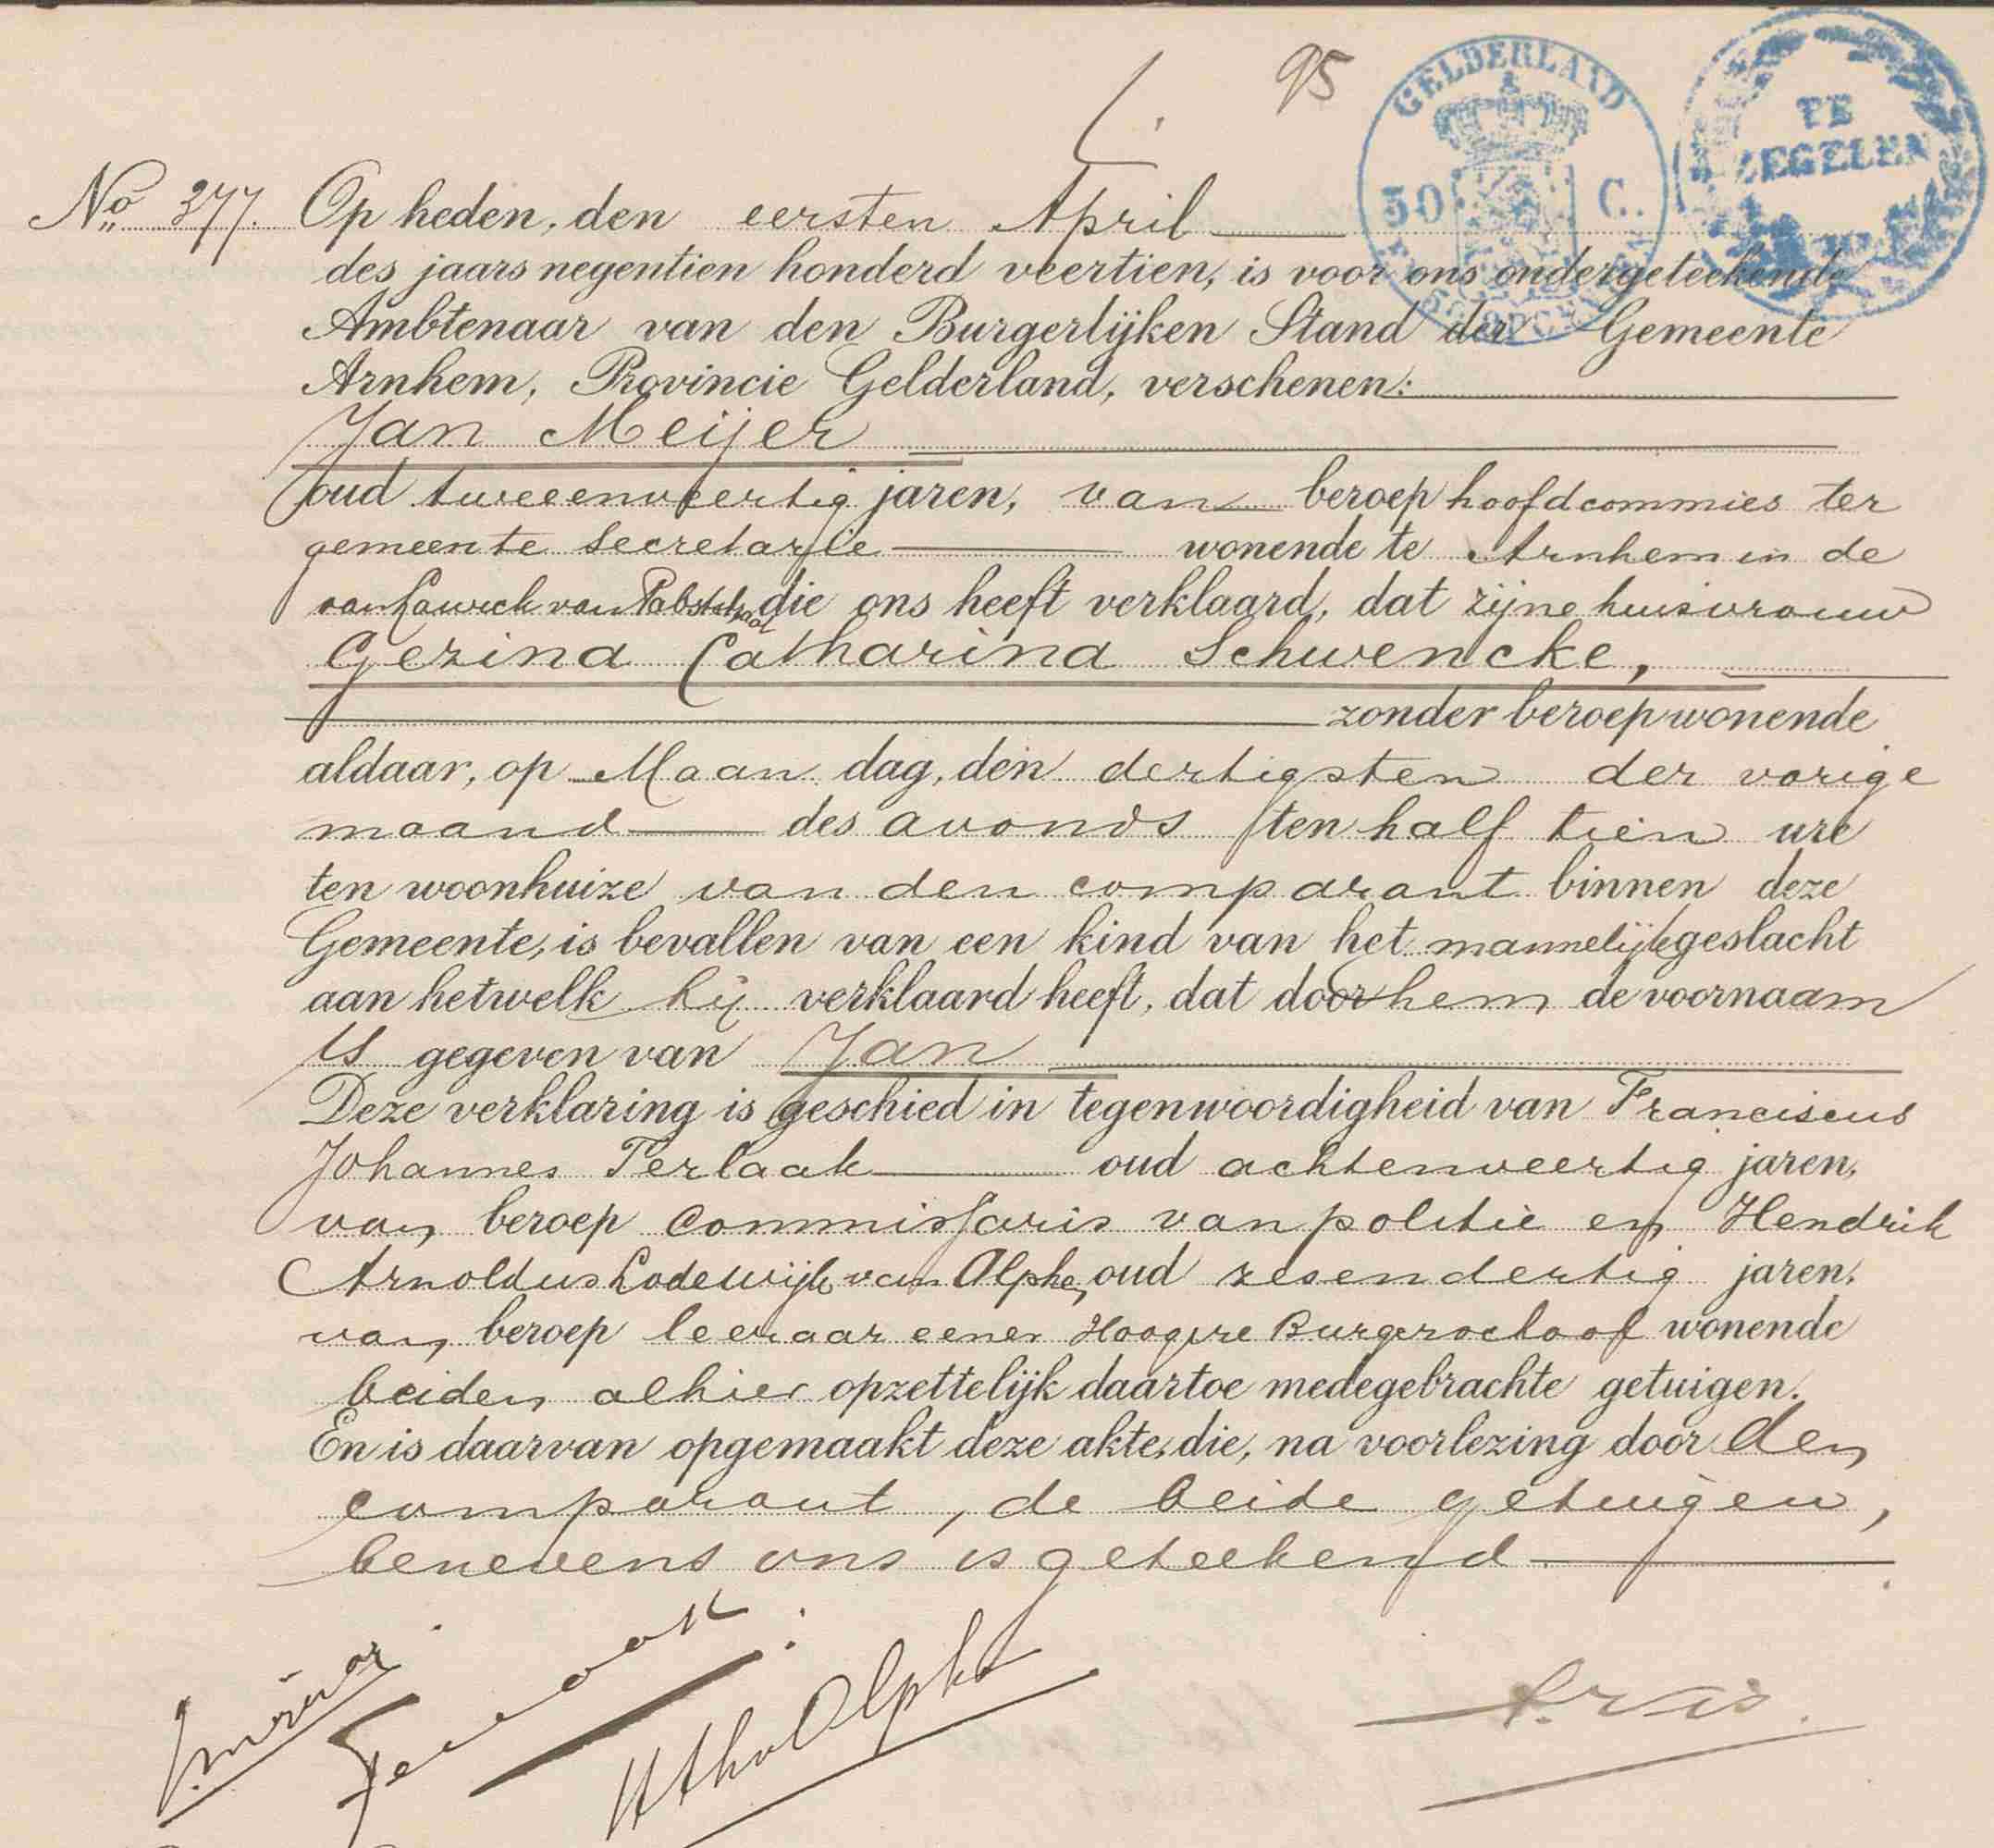 95
GELDERLAND
50 C.
TE
ZEGELEN
No 377. Op heden, den eersten April
des jaars negentien honderd veertien, is voor ons ondergeteekende
Ambtenaar van den Burgerlijken Stand der Gemeente
Arnhem, Provincie Gelderland, verschenen:
Jan Meijer
oud tweeenveertig jaren, van beroep hoofdcommies ter
gemeente secretarie wonende te Arnhem in de
van Lawick van Pabststraat die ons heeft verklaard, dat zijne huisvrouw
Gezina Catharina Schwencke,
zonder beroep wonende
aldaar, op Maandag, den dertigsten der vorige
maand des avonds ten half tien ure
ten woonhuize van den comparant binnen deze
Gemeente, is bevallen van een kind van het mannelijk geslacht
aan hetwelk hij verklaard heeft, dat door hem de voornaam
is gegeven van Jan
Deze verklaring is geschied in tegenwoordigheid van Franciscus
Johannes Terlaak oud achtenveertig jaren,
van beroep commissaris van politie en Hendrik
Arnoldus Lodewijk van Alphen oud zesendertig jaren,
van beroep leeraar eener Hoogere Burgerschool wonende
beiden alhier opzettelijk daartoe medegebrachte getuigen.
En is daarvan opgemaakt deze akte, die, na voorlezing door den
comparant, de beide getuigen,
benevens ons is geteekend
J. Meijer
Terlaak
HAL v Alphen